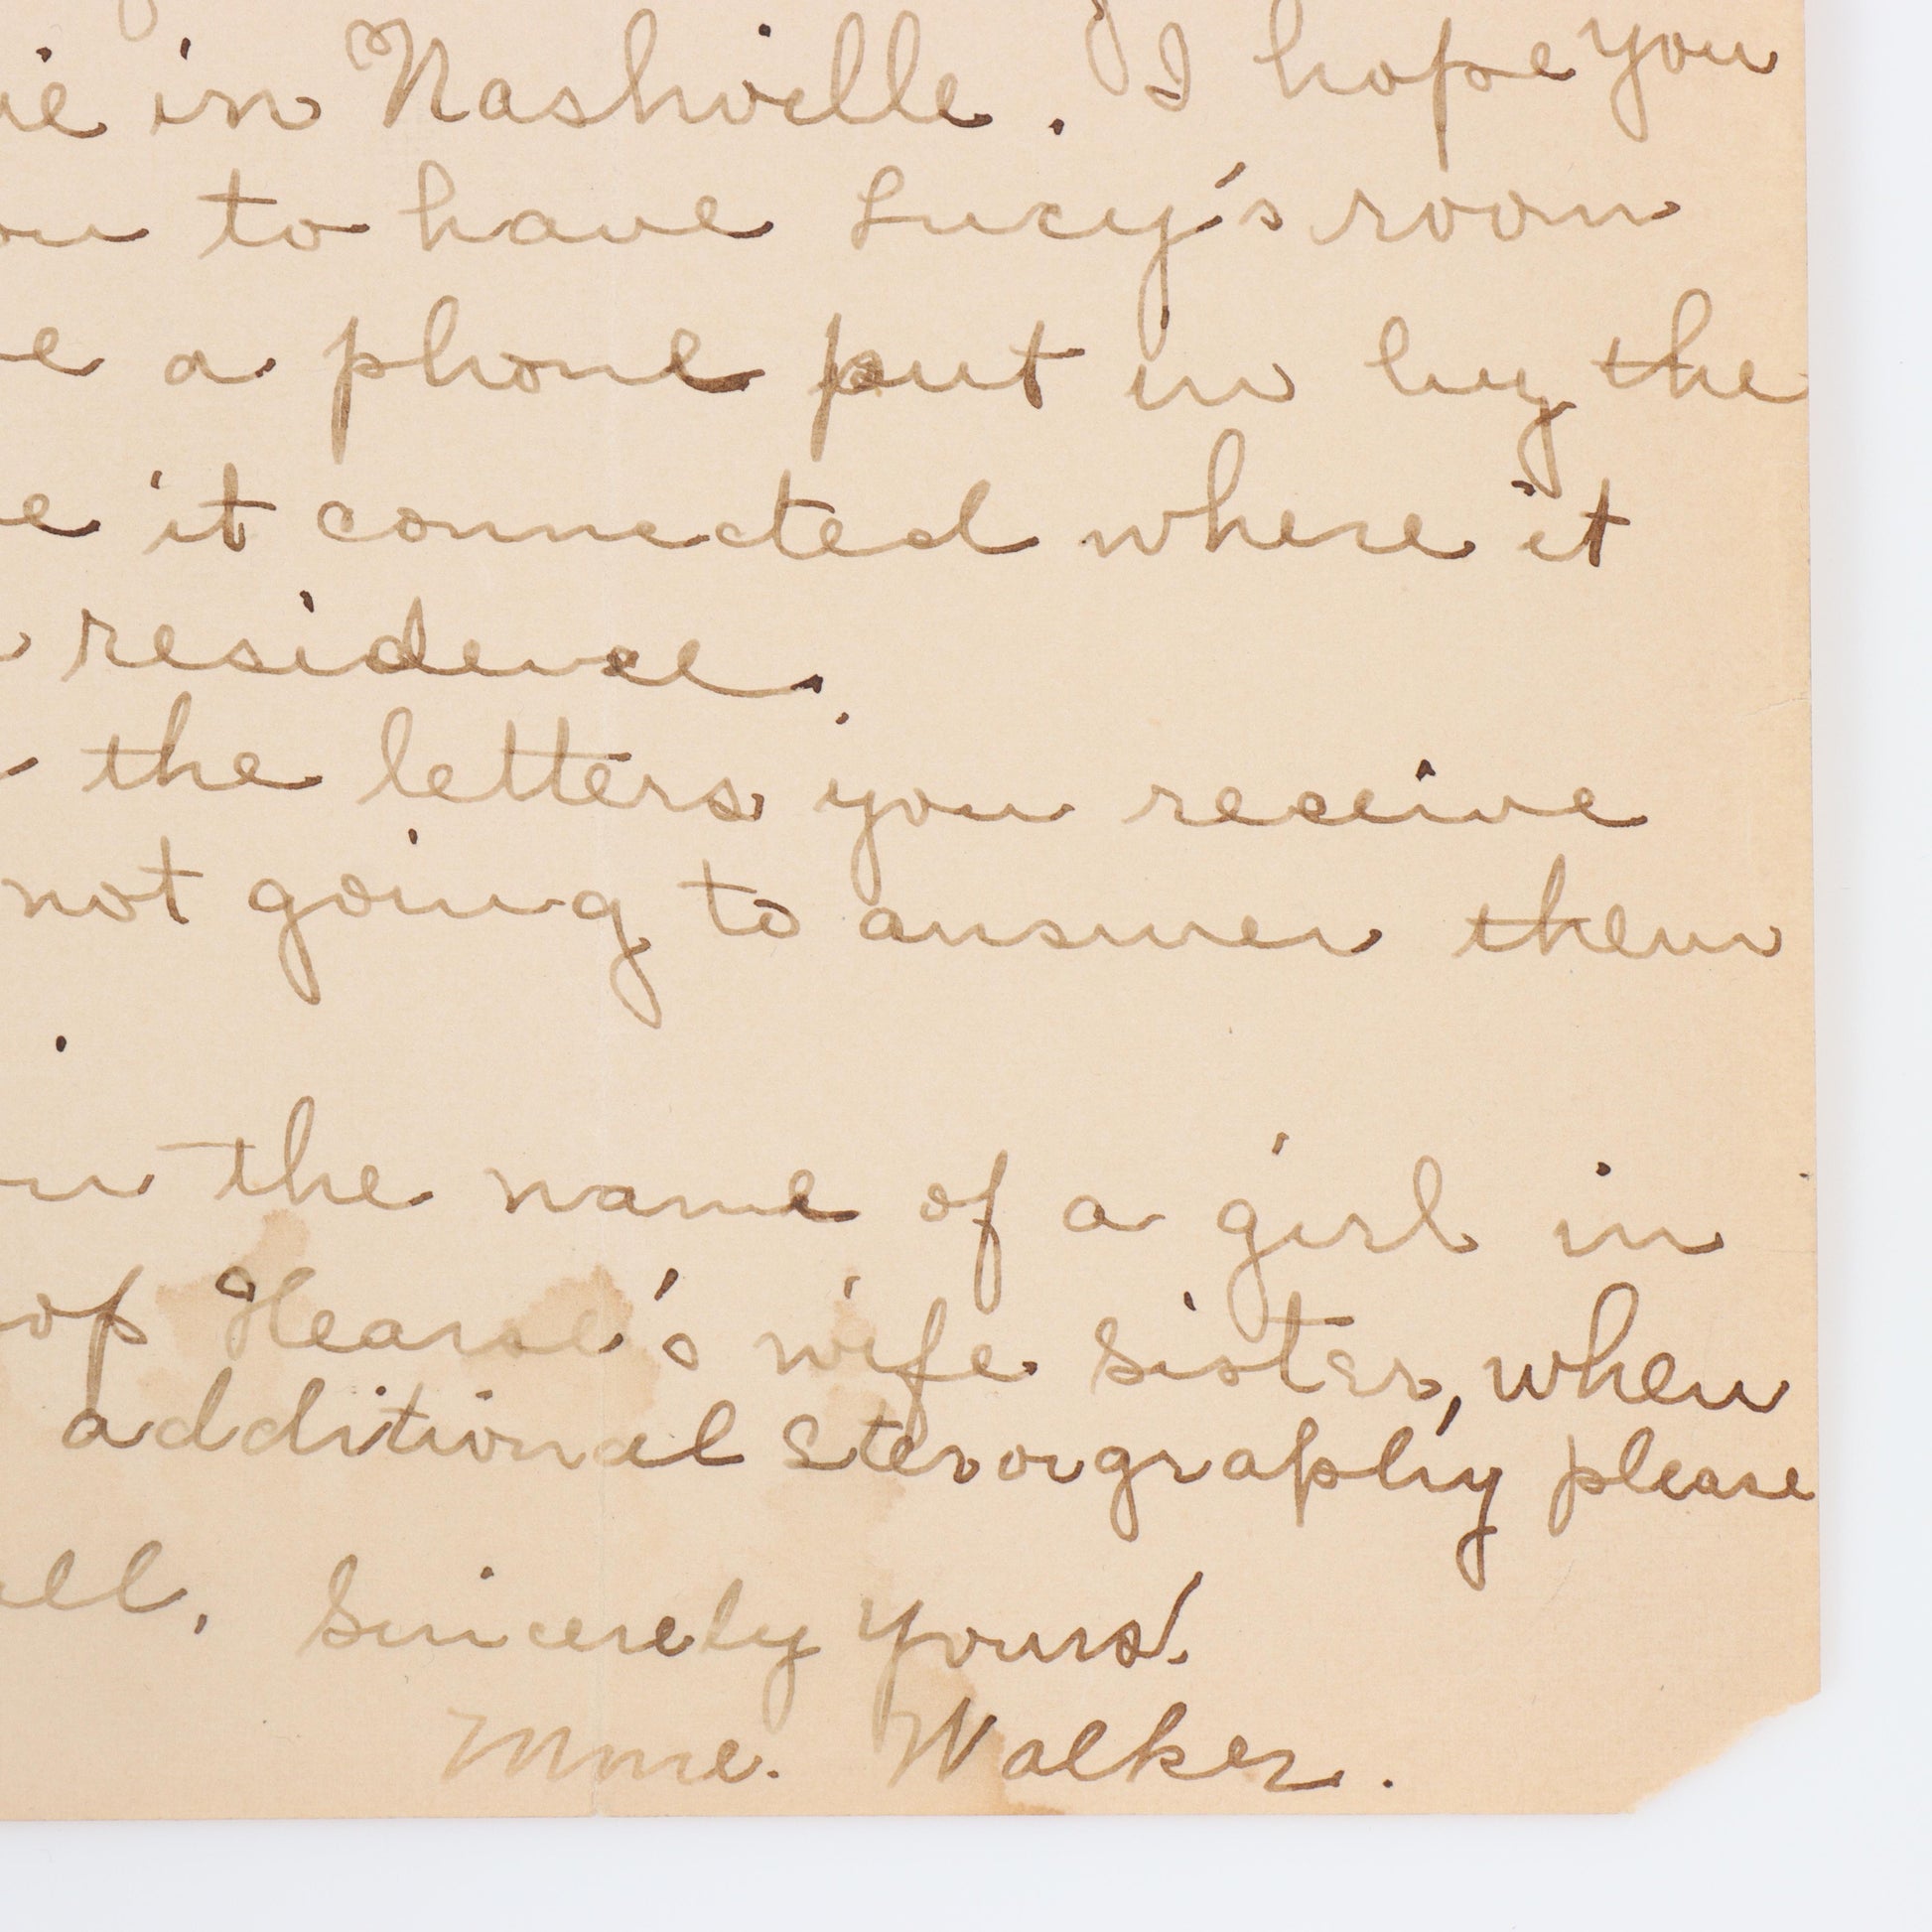 ie in Nashville. I hope you
ou to have Lucy's room
e a phone put in by the
e it connected where it
residence.
the letters you receive
not going to answer them
.
the name of a girl in
op Hearse's wife sister, when
additional stenography please
ell, Sincerely Yours.
Mme. Walker.